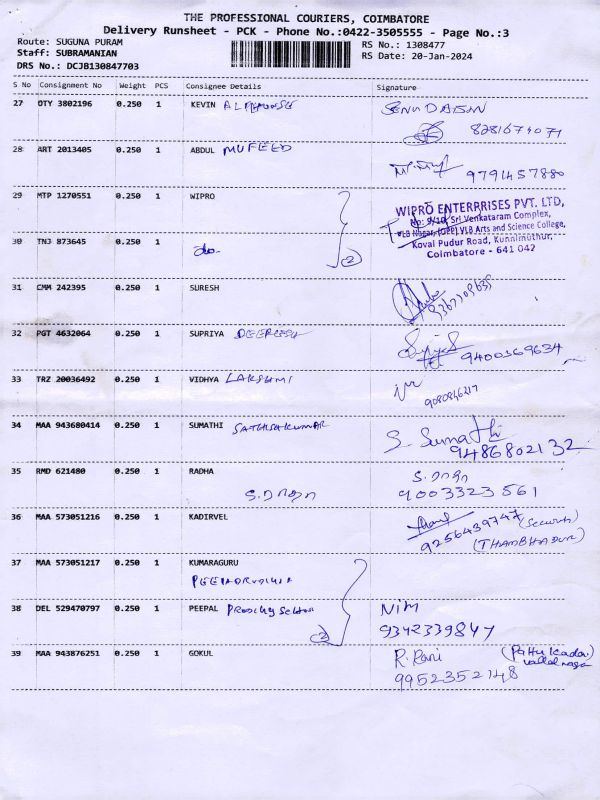 THE PROFESSIONAL COURIERS, COIMBATORE
Delivery Runsheet - PCK - Phone No.:0422-3505555 - Page No.:3
Route: SUGUNA PURAM
RS No.: 1308477
Staff: SUBRAMANIAN
RS Date: 20-Jan-2024
DRS No.: DCJB130847703
S No Consignment No Weight PCS Consignee Details Signature
27 OTY 3802196 0.250 1 KEVIN
8281674071
28 ART 2013405 0.250 1 ABDUL MUFEED
9791457880
29 MTP 1270551 0.250 1 WIPRO
WIPRO ENTERPRISES PVT. LTD,
No: 9/10, Sri Venkataram Complex,
VLB Nagar, (OPP) VLB Arts and Science College,
Kovai Pudur Road, Kunnimuthur,
Coimbatore - 641 042
30 TNJ 873645 0.250 1 do. 2
31 CMM 242395 0.250 1 SURESH
32 PGT 4632064 0.250 1 SUPRIYA
9400369634
33 TRZ 20036492 0.250 1 VIDHYA LAKSHMI
9080846217
34 MAA 943680414 0.250 1 SUMATHI SATHISHKUMAR S. Sumathi
9486802132
35 RMD 621480 0.250 1 RADHA
S.ராதா S.ராதா
9003323561
36 MAA 573051216 0.250 1 KADIRVEL
9256439747 (Security)
(THAMBHADUR)
37 MAA 573051217 0.250 1 KUMARAGURU
38 DEL 529470797 0.250 1 PEEPAL 2 Nim
9342339847
39 MAA 943876251 0.250 1 GOKUL R. Rani
9952352148